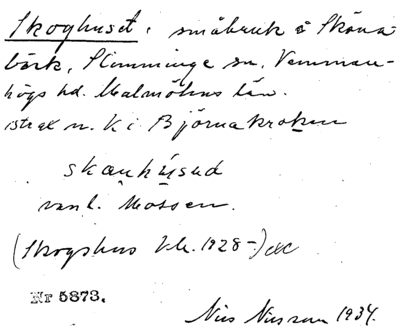 Skoghuset, småbruk å Sköna-
bäck, Slimminge sn, Vemmen-
högs hd. Malmöhus län.
strax n. k i Björnakroken
skauhúsed
vanl. Mossen.
(Skogshus V.b. 1928-)
Nr 5873.
Nils Nilsson 1934.